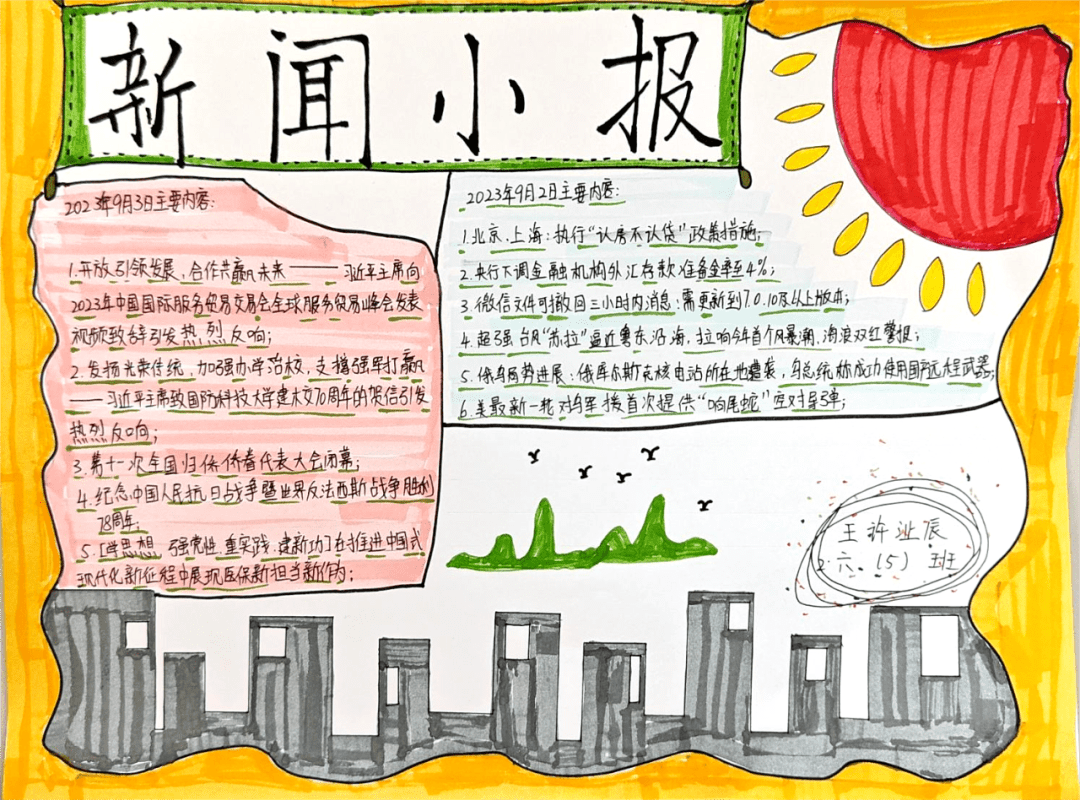 新闻小报
2023年9月3日主要内容:
1.开放引领发展,合作共赢未来——习近平主席向
2023年中国国际服务贸易交易会全球服务贸易峰会发表
视频致辞引发热烈反响;
2.发扬光荣传统,加强办学治校,支撑强军打赢
——习近平主席致国防科技大学建校70周年的贺信引发
热烈反响;
3.第十一次全国归侨侨眷代表大会闭幕;
4.纪念中国人民抗日战争暨世界反法西斯战争胜利
78周年;
5.[学思想 强党性 重实践 建新功]在推进中国式
现代化新征程中展现医保新担当新作为;
2023年9月2日主要内容:
1.北京、上海:执行“认房不认贷”政策措施;
2.央行下调金融机构外汇存款准备金率至4%;
3.微信文件可撤回三小时内消息:需更新到7.0.10及以上版本;
4.超强台风“苏拉”逼近粤东沿海,拉响今年首个风暴潮、海浪双红警报;
5.俄乌局势进展:俄库尔斯克核电站所在地遭袭,乌总统称成功使用国产远程武器;
6.美最新一轮对乌军援首次提供“响尾蛇”空对导弹;
王许沚辰
六.(5) 班